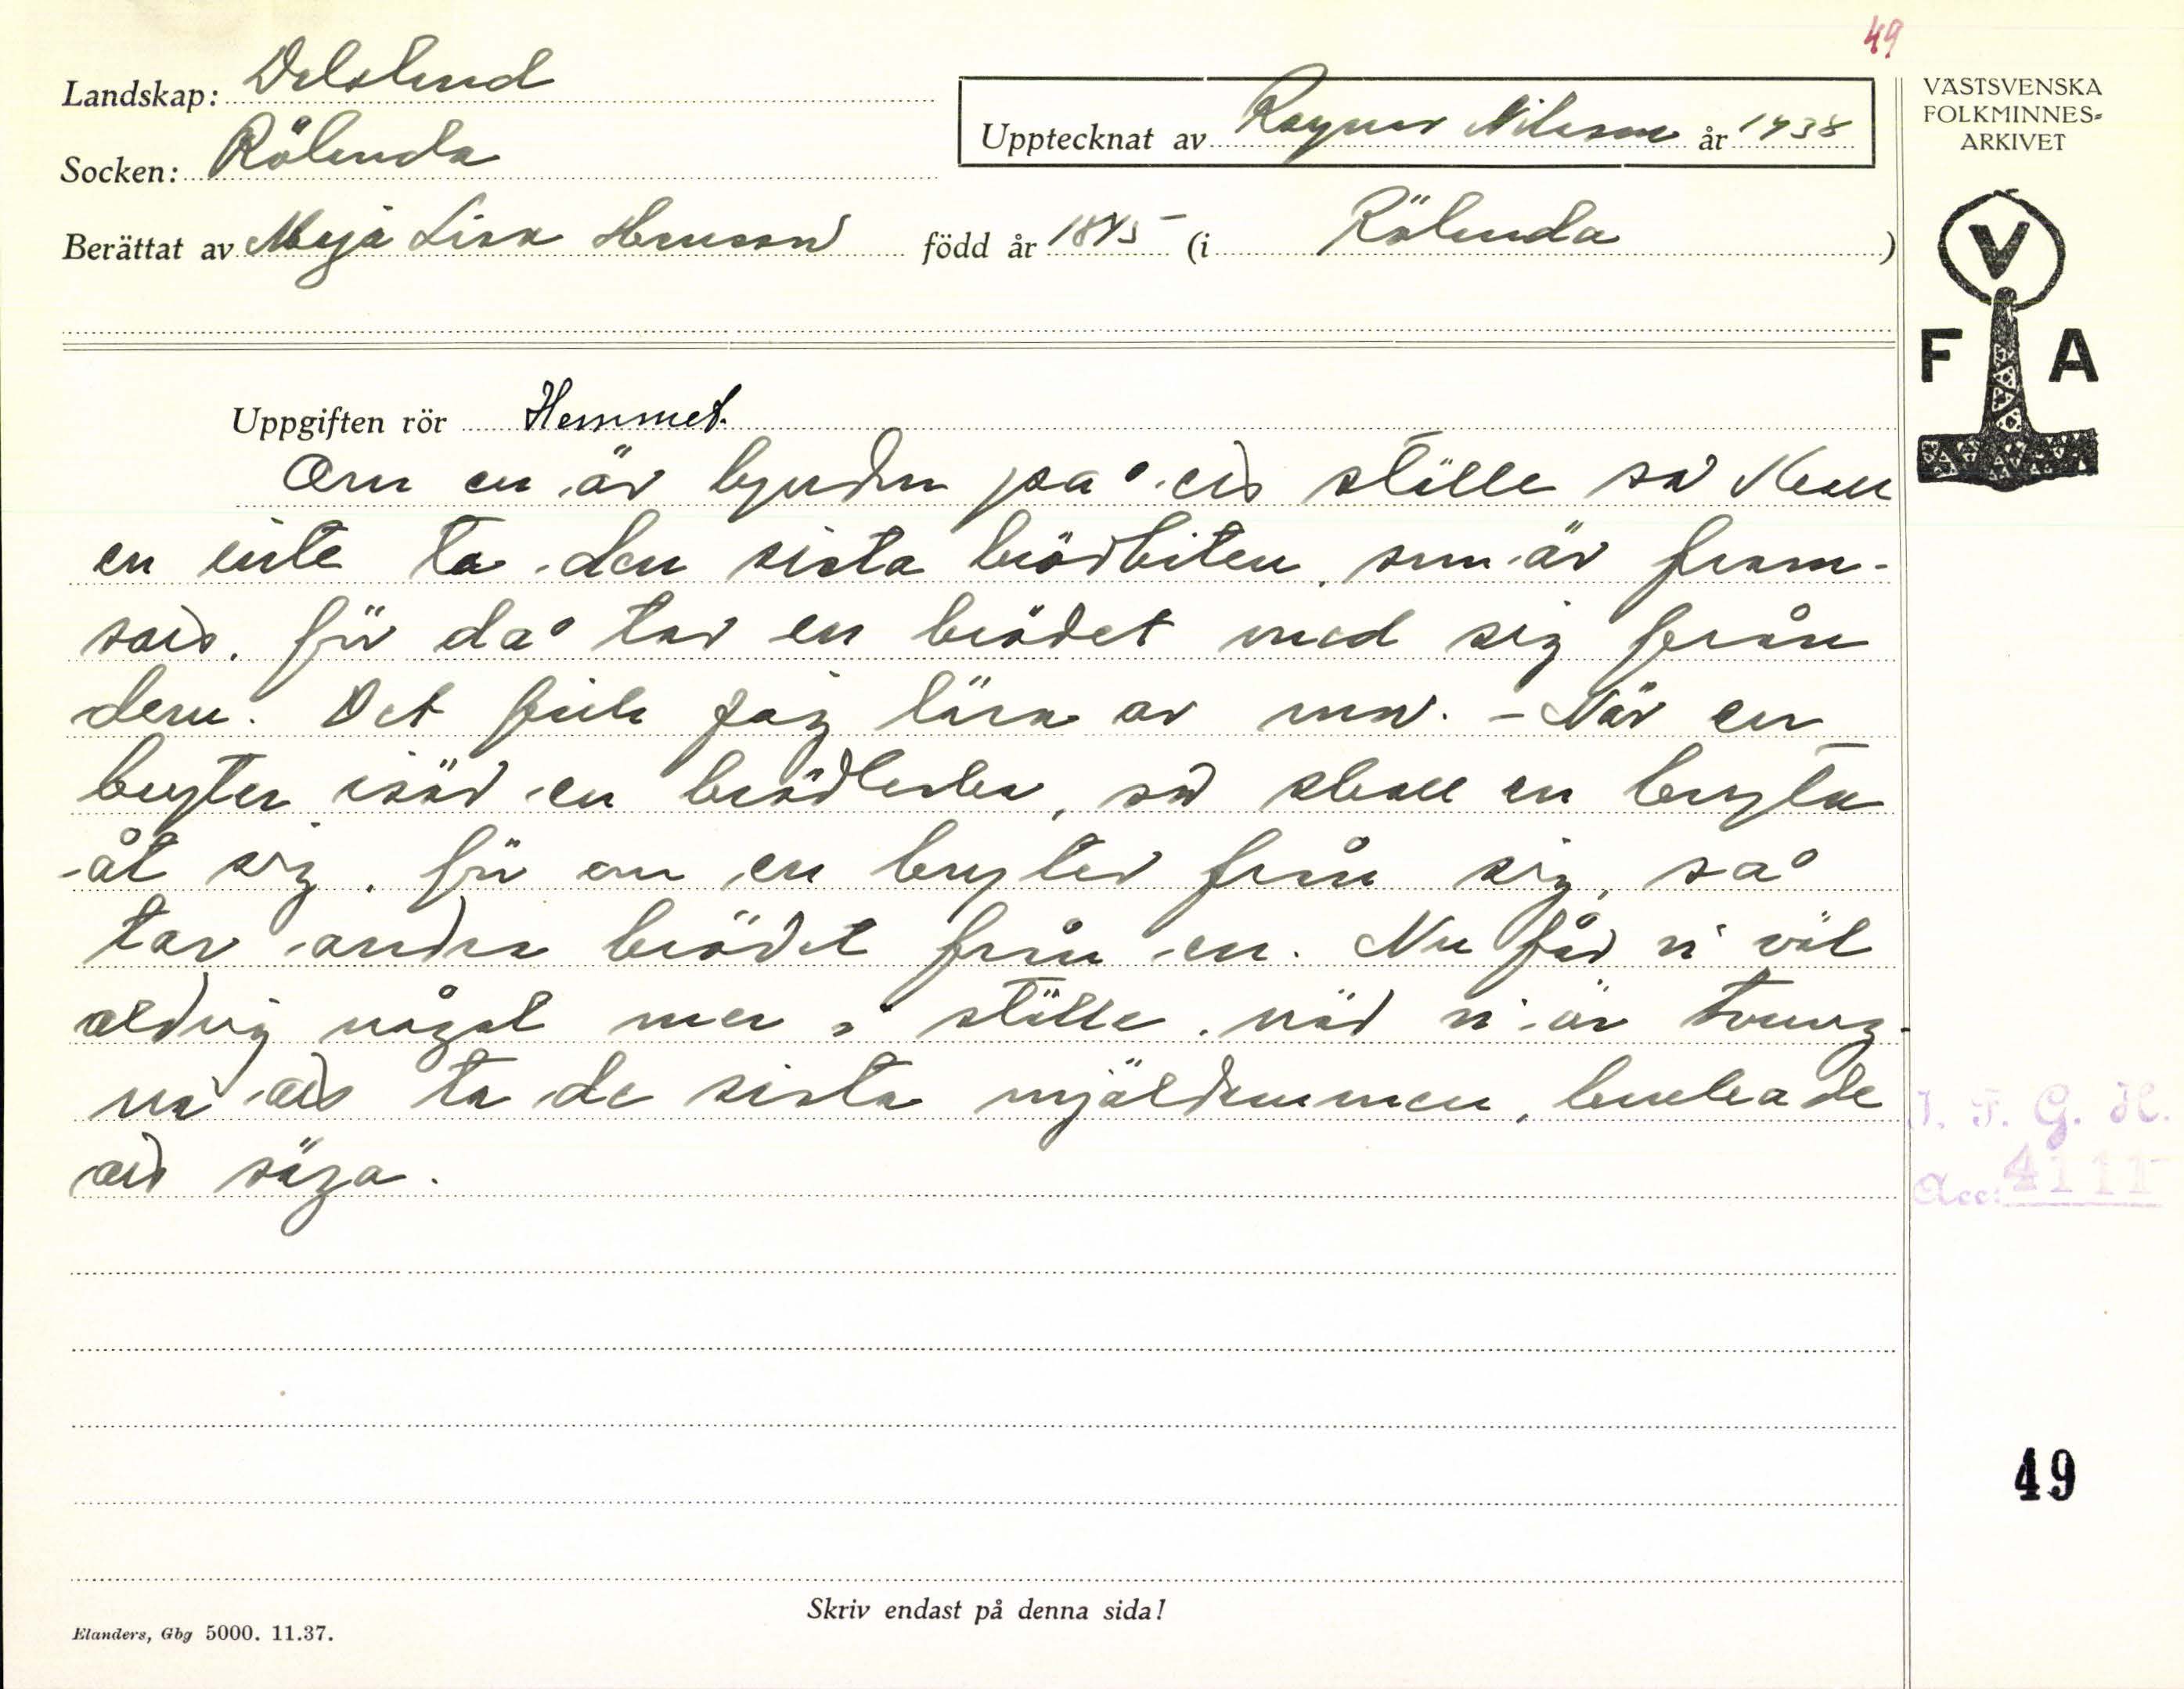 49
Landskap: Dalsland
Socken: Rölanda
Upptecknat av Ragnar Nilsson år 1938
Berättat av Maja Lisa Hansson född år 1845 (i Rölanda)
VÄSTSVENSKA
FOLKMINNES-
ARKIVET
V
F A
Uppgiften rör Hemmet.
Om en är bjuden på ett ställe så skall
en inte ta den sista brödbiten, som är fram-
satt, för då tar en brödet med sig från
dem. Det fick jag lära av mor. - När en
bryter isär en brödkaka, så skall en bryta
åt sig, för om en bryter från sig, så
tar andra brödet från en. Nu får vi väl
aldrig något mer i stället, när vi är tvung-
na att ta de sista mjöldammen, brukade
att säga.
I. F. G. H.
Acc: 4111
49
Skriv endast på denna sida!
Elanders, Gbg 5000. 11.37.